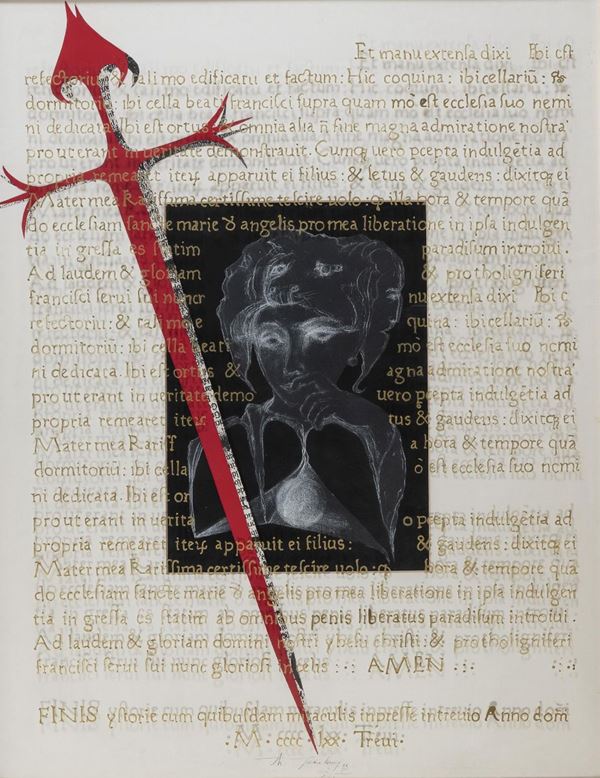 Et manu extensa dixi Ibi est
refectoriu & tali mo edificaru et factum: Hic coquina: ibi cellariū:
dormitoriū: ibi cella beati francisci supra quam mō est ecclesia suo nemi
ni dedicata. Ibi est ortus omnia alia ī fine magna admiratione nostra
prout erant in veritate demonstrauit. Cumq uero pcepta indulgētia ad
propria remearet iteꝝ apparuit ei filius: & letus & gaudens: dixitq ei
Mater mea Karissima certissime te scire uolo: q illa hora & tempore quā
do ecclesiam sancte marie angelis pro mea liberatione in ipsa indulgen
tia ingressa es statim paradisum introiui.
Ad laudem & gloriam & protholigniferi
francisci serui sui nunc nu extensa dixi Ibi e
refectoriu: & tali mo e quina: ibi cellariū:
dormitoriū: ibi cella beati mō est ecclesia suo nemi
ni dedicata. Ibi est ortus & agna admiratione nostra
prout erant in veritate demo uero pcepta indulgētia ad
propria remearet iteꝝ tus & gaudens: dixitq ei
Mater mea Kariss a hora & tempore quā
dormitoriū: ibi cella ō est ecclesia suo nemi
ni dedicata. Ibi est or
prout erant in uerita o pcepta indulgētia ad
propria remearet iteꝝ apparuit ei filius: & gaudens: dixitq ei
Mater mea Karissima certissime te scire uolo: q hora & tempore quā
do ecclesiam sancte marie angelis pro mea liberatione in ipsa indulgen
tia in gressa es statim ab omnibus penis liberatus paradisum introiui.
Ad laudem & gloriam domini nostri yhesu christi: & protholigniferi
francisci serui sui nunc gloriosi in celis : : AMEN : :
FINIS ystorie cum quibusdam miraculis inpresse in treuio Anno dom
· M · cccc · lxx · Treui ·